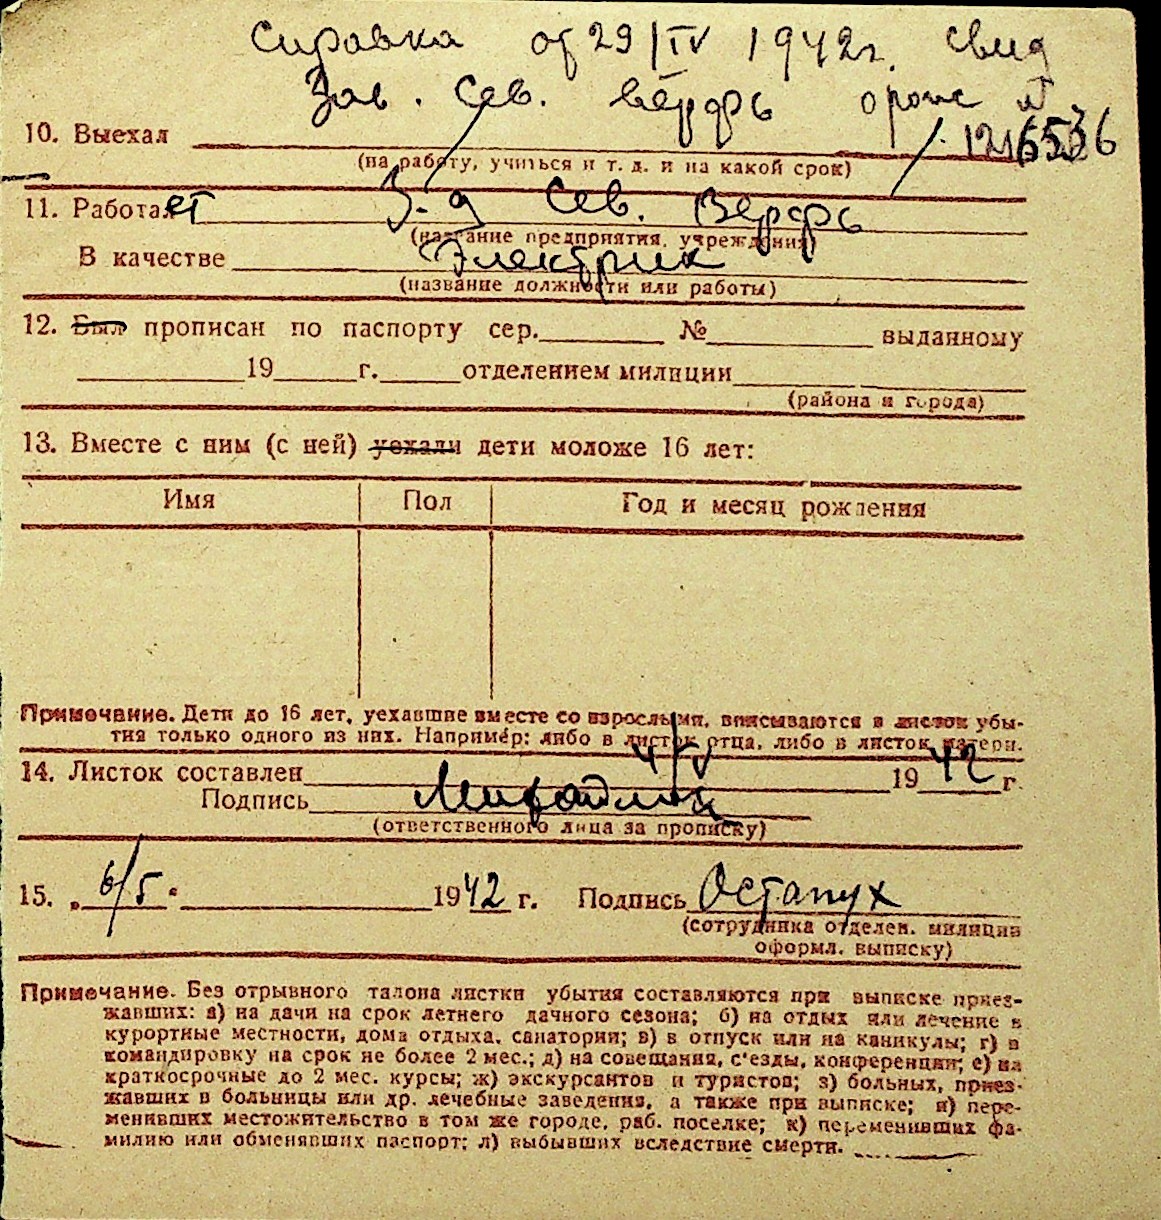 Справка от 29/IV 1942г. свид
Зав. Сев. верфь
10. Выехал
(на работу, учиться и т. д. и на какой срок)
11. Работает З-д Сев. Верфь
(название предприятия, учреждения)
В качестве Электрик
(название должности или работы)
12. Был прописан по паспорту сер. № выданному
19 г. отделением милиции
(района и города)
13. Вместе с ним (с ней) уехали дети моложе 16 лет:
Имя Пол Год и месяц рождения
Примечание. Дети до 16 лет, уехавшие вместе со взрослыми, вписываются в листок убы-
тия только одного из них. Например: либо в листок отца, либо в листок матери.
14. Листок составлен 4/V 1942 г.
Подпись
(ответственного лица за прописку)
15. „6/5“ 1942 г. Подпись Остапух
(сотрудника отделен. милиции
оформл. выписку)
Примечание. Без отрывного талона листки убытия составляются при выписке приез-
жавших: а) на дачи на срок летнего дачного сезона; б) на отдых или лечение в
курортные местности, дома отдыха, санатории; в) в отпуск или на каникулы; г) в
командировку на срок не более 2 мес.; д) на совещания, с'езды, конференции; е) на
краткосрочные до 2 мес. курсы; ж) экскурсантов и туристов; з) больных, приез-
жавших в больницы или др. лечебные заведения, а также при выписке; и) пере-
менивших местожительство в том же городе, раб. поселке; к) переменивших фа-
милию или обменявших паспорт; л) выбывших вследствие смерти.